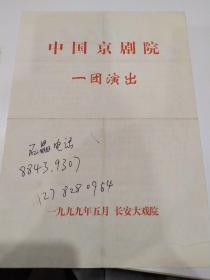 中国京剧院
一团演出
石晶电话
8843.9307
1278280964
一九九九年五月 长安大戏院